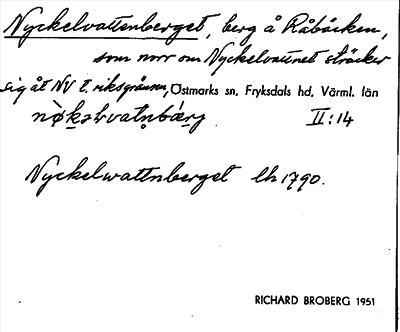 Nyckelvattenberget, berg å Råbäcken,
som norr om Nyckelvattnet sträcker
sig åt NV t. riksgränsen, Östmarks sn, Fryksdals hd, Värml. län
II:14
Nyckelwattnberget lh 1790.
RICHARD BROBERG 1951